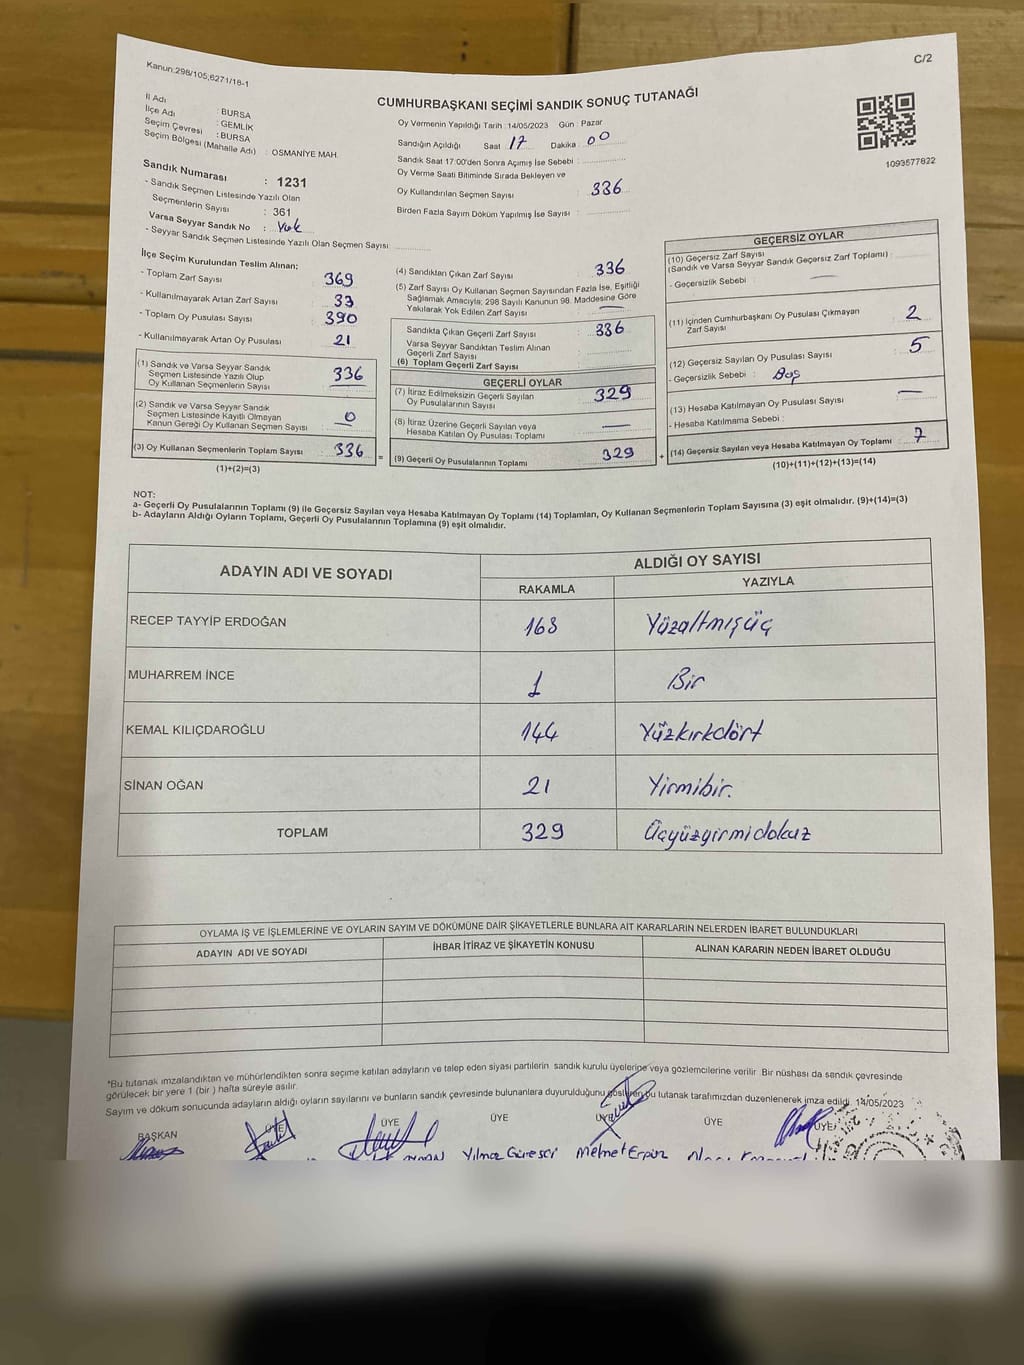 Kanun:298/105,6271/18-1
C/2
CUMHURBAŞKANI SEÇİMİ SANDIK SONUÇ TUTANAĞI
İl Adı : BURSA
İlçe Adı : GEMLİK
Seçim Çevresi : BURSA
Seçim Bölgesi (Mahalle Adı) : OSMANİYE MAH.
Sandık Numarası : 1231
- Sandık Seçmen Listesinde Yazılı Olan
Seçmenlerin Sayısı : 361
Varsa Seyyar Sandık No : Yok
- Seyyar Sandık Seçmen Listesinde Yazılı Olan Seçmen Sayısı
Oy Vermenin Yapıldığı Tarih :14/05/2023 Gün : Pazar
Sandığın Açıldığı Saat 17 Dakika 00
Sandık Saat 17:00'den Sonra Açımış İse Sebebi :
Oy Verme Saati Bitiminde Sırada Bekleyen ve
Oy Kullandırılan Seçmen Sayısı : 336
Birden Fazla Sayım Döküm Yapılmış İse Sayısı :
1093577822
İlçe Seçim Kurulundan Teslim Alınan;
- Toplam Zarf Sayısı : 369
- Kullanılmayarak Artan Zarf Sayısı : 33
- Toplam Oy Pusulası Sayısı : 390
- Kullanılmayarak Artan Oy Pusulası : 21
(1) Sandık ve Varsa Seyyar Sandık
Seçmen Listesinde Yazılı Olup
Oy Kullanan Seçmenlerin Sayısı 336
(2) Sandık ve Varsa Seyyar Sandık
Seçmen Listesinde Kayıtlı Olmayan
Kanun Gereği Oy Kullanan Seçmen Sayısı 0
(3) Oy Kullanan Seçmenlerin Toplam Sayısı 336
(1)+(2)=(3)
=
(4) Sandıktan Çıkan Zarf Sayısı 336
(5) Zarf Sayısı Oy Kullanan Seçmen Sayısından Fazla İse, Eşitliği
Sağlamak Amacıyla; 298 Sayılı Kanunun 98. Maddesine Göre
Yakılarak Yok Edilen Zarf Sayısı —
Sandıkta Çıkan Geçerli Zarf Sayısı 336
Varsa Seyyar Sandıktan Teslim Alınan
Geçerli Zarf Sayısı
(6) Toplam Geçerli Zarf Sayısı
GEÇERLİ OYLAR
(7) İtiraz Edilmeksizin Geçerli Sayılan
Oy Pusulalarının Sayısı 329
(8) İtiraz Üzerine Geçerli Sayılan veya
Hesaba Katılan Oy Pusulası Toplamı —
(9) Geçerli Oy Pusulalarının Toplamı 329
+
GEÇERSİZ OYLAR
(10) Geçersiz Zarf Sayısı
(Sandık ve Varsa Seyyar Sandık Geçersiz Zarf Toplamı) :
- Geçersizlik Sebebi : —
(11) İçinden Cumhurbaşkanı Oy Pusulası Çıkmayan
Zarf Sayısı 2
(12) Geçersiz Sayılan Oy Pusulası Sayısı 5
- Geçersizlik Sebebi : Boş
(13) Hesaba Katılmayan Oy Pusulası Sayısı —
- Hesaba Katılmama Sebebi :
(14) Geçersiz Sayılan veya Hesaba Katılmayan Oy Toplamı 7
(10)+(11)+(12)+(13)=(14)
NOT:
a- Geçerli Oy Pusulalarının Toplamı (9) ile Geçersiz Sayılan veya Hesaba Katılmayan Oy Toplamı (14) Toplamları, Oy Kullanan Seçmenlerin Toplam Sayısına (3) eşit olmalıdır. (9)+(14)=(3)
b- Adayların Aldığı Oyların Toplamı, Geçerli Oy Pusulalarının Toplamına (9) eşit olmalıdır.
ADAYIN ADI VE SOYADI
ALDIĞI OY SAYISI
RAKAMLA YAZIYLA
RECEP TAYYİP ERDOĞAN 163 Yüzaltmışüç
MUHARREM İNCE 1 Bir
KEMAL KILIÇDAROĞLU 144 Yüzkırkdört
SİNAN OĞAN 21 Yirmibir.
TOPLAM 329 Üçyüzyirmidokuz
OYLAMA İŞ VE İŞLEMLERİNE VE OYLARIN SAYIM VE DÖKÜMÜNE DAİR ŞİKAYETLERLE BUNLARA AİT KARARLARIN NELERDEN İBARET BULUNDUKLARI
ADAYIN ADI VE SOYADI İHBAR İTİRAZ VE ŞİKAYETİN KONUSU ALINAN KARARIN NEDEN İBARET OLDUĞU
*Bu tutanak imzalandıktan ve mühürlendikten sonra seçime katılan adayların ve talep eden siyasi partilerin sandık kurulu üyelerine veya gözlemcilerine verilir Bir nüshası da sandık çevresinde
görülecek bir yere 1 (bir ) hafta süreyle asılır.
Sayım ve döküm sonucunda adayların aldığı oyların sayılarını ve bunların sandık çevresinde bulunanlara duyurulduğunu gösteren bu tutanak tarafımızdan düzenlenerek imza edildi. 14/05/2023
BAŞKAN ÜYE ÜYE ÜYE ÜYE ÜYE ÜYE
Yılmaz Güreşci Mehmet Ergün